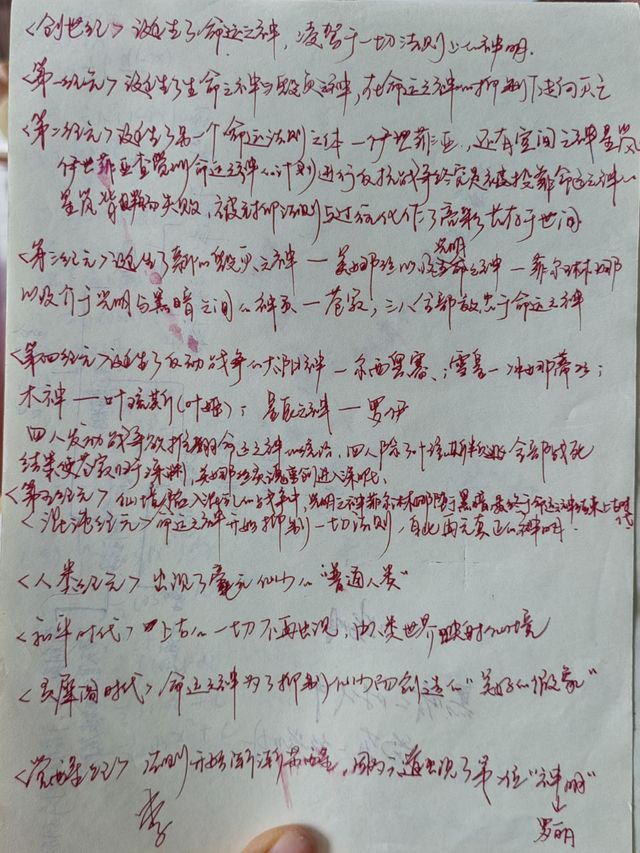 <创世纪> 诞生了命运之神，凌驾于一切法则上的神明.
<第一纪元> 诞生了生命之神与毁灭之神，在命运之神的抑制下走向灭亡
<第二纪元> 诞生了另一个命运法则之体一伊世菲亚，还有空间之神星岚
伊世菲亚查觉到命运之神的计划进行反抗战争终究是被投靠命运之神的
星岚背叛而失败，被封印法则与过往化作了
<第三纪元> 诞生了新的毁灭之神一 以及光明之神一菲尔林娜
以及介于光明与黑暗之间的神灵一苍寂，三人全部效忠于命运之神
<第四纪元> 诞生了反动战争的太阳神一 ；雪皇一冰娜蒂丝；
木神一叶瑞斯(叶娅)；星辰之神一罗伊
四人发动战争欲推翻命运之神的统治，四人除了叶瑞斯 全部战死
结果使苍寂归于深渊，
<第五纪元> 仙境陷入混乱的战争中，光明之神菲尔林娜堕于黑暗最终于命运之神结束上古时代
<混沌纪元> 命运之神开始抑制一切法则，自此再无真正的神明.
<人类纪元> 出现了毫无仙力的"普通人类"
<和平时代> 上古的一切不再出现，由人类世界映射仙境
<灵犀阁时代> 命运之神为了抑制仙力而创造的"美好的假象"
法则开始渐渐 ，出现了第一位"神明"
↓
罗丽
李